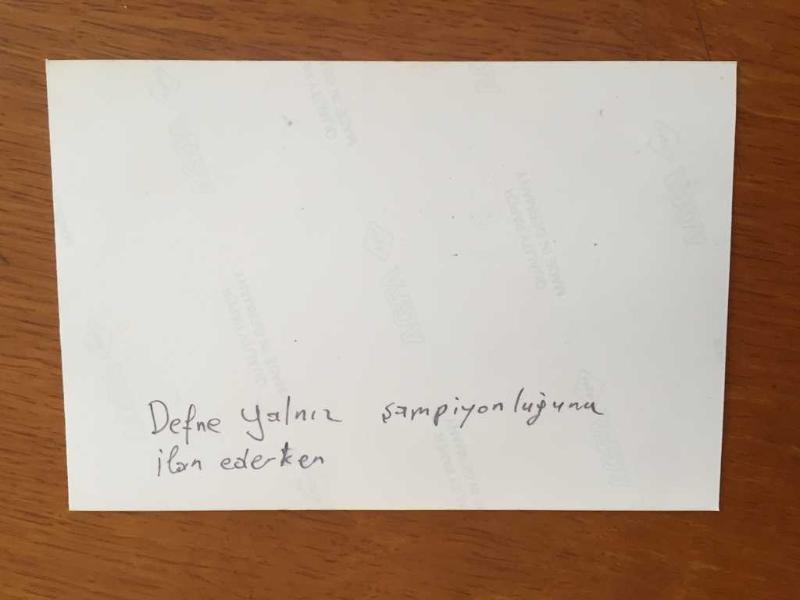 Defne Yalnız şampiyonluğunu
ilan ederken